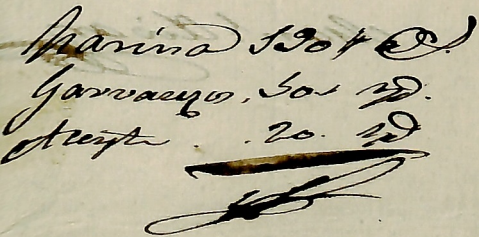 Harina 130 @.
Garvanzos, 50 yd.
Aceyte . . 20. yd